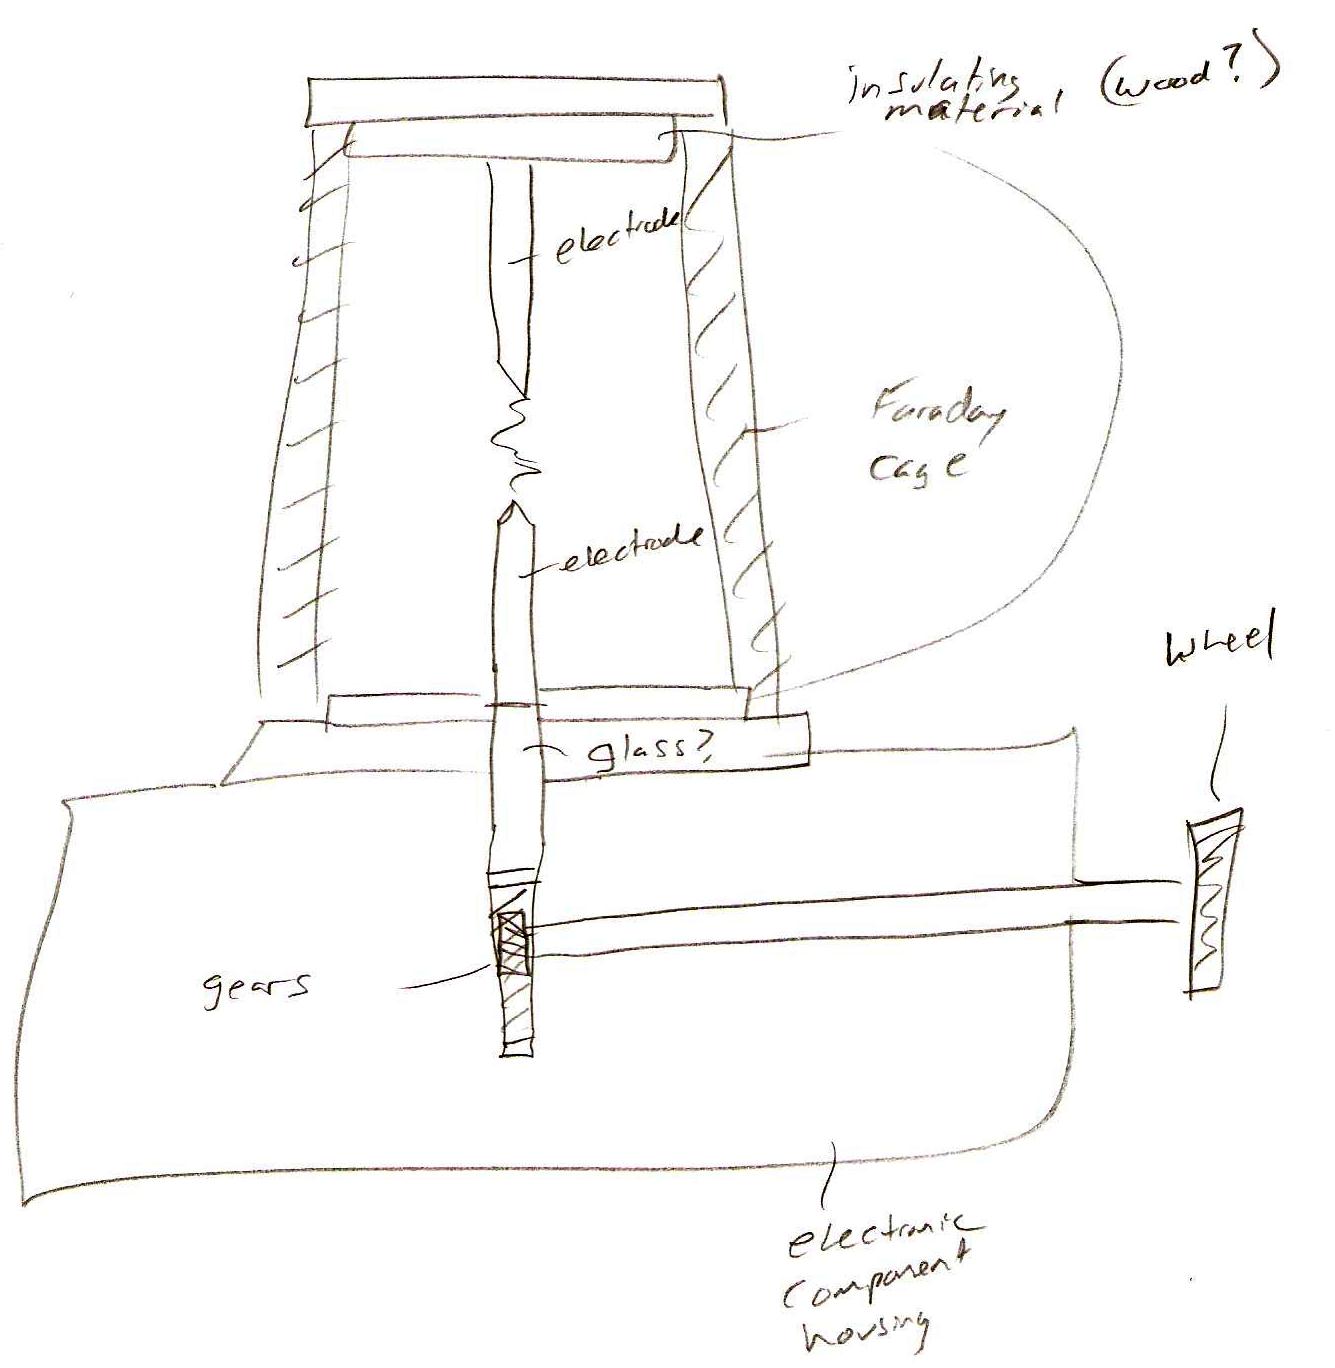 insulating
material (wood?)
electrode
Faraday
cage
electrode
wheel
glass?
gears
electronic
component
housing